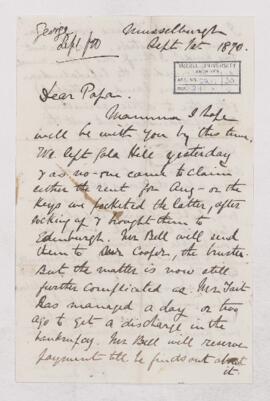 George
Sept 1/90
Musselburgh
Sept 1st 1890.
McGILL UNIVERSITY
ARCHIVES
Dear Papa.
Mamma I hope
will be with you by this time.
We left Gala Hill yesterday
& as no-one came to claim
either the rent for Aug - or the
keys we pocketed the latter, after
locking up & brought them to
Edinburgh. Mr Bell will send
them to Cooper, the trustee.
But the matter is now still
further complicated as Mr
Ras managed a day or two
ago to get a discharge in the
bankruptcy. Mr Bell will reserve
payment till he finds out about
it.